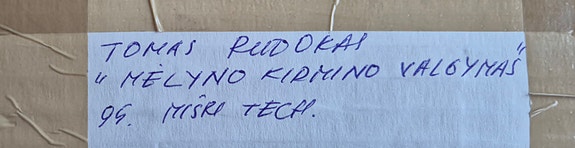 TOMAS RUDOKAS
"MĖLYNO KIRMINO VALGYMAS"
95. MIŠRI TECH.